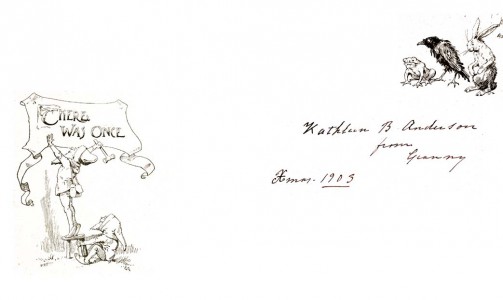 THERE
WAS ONCE
Kathleen B Anderson
from
Granny
Xmas. 1903